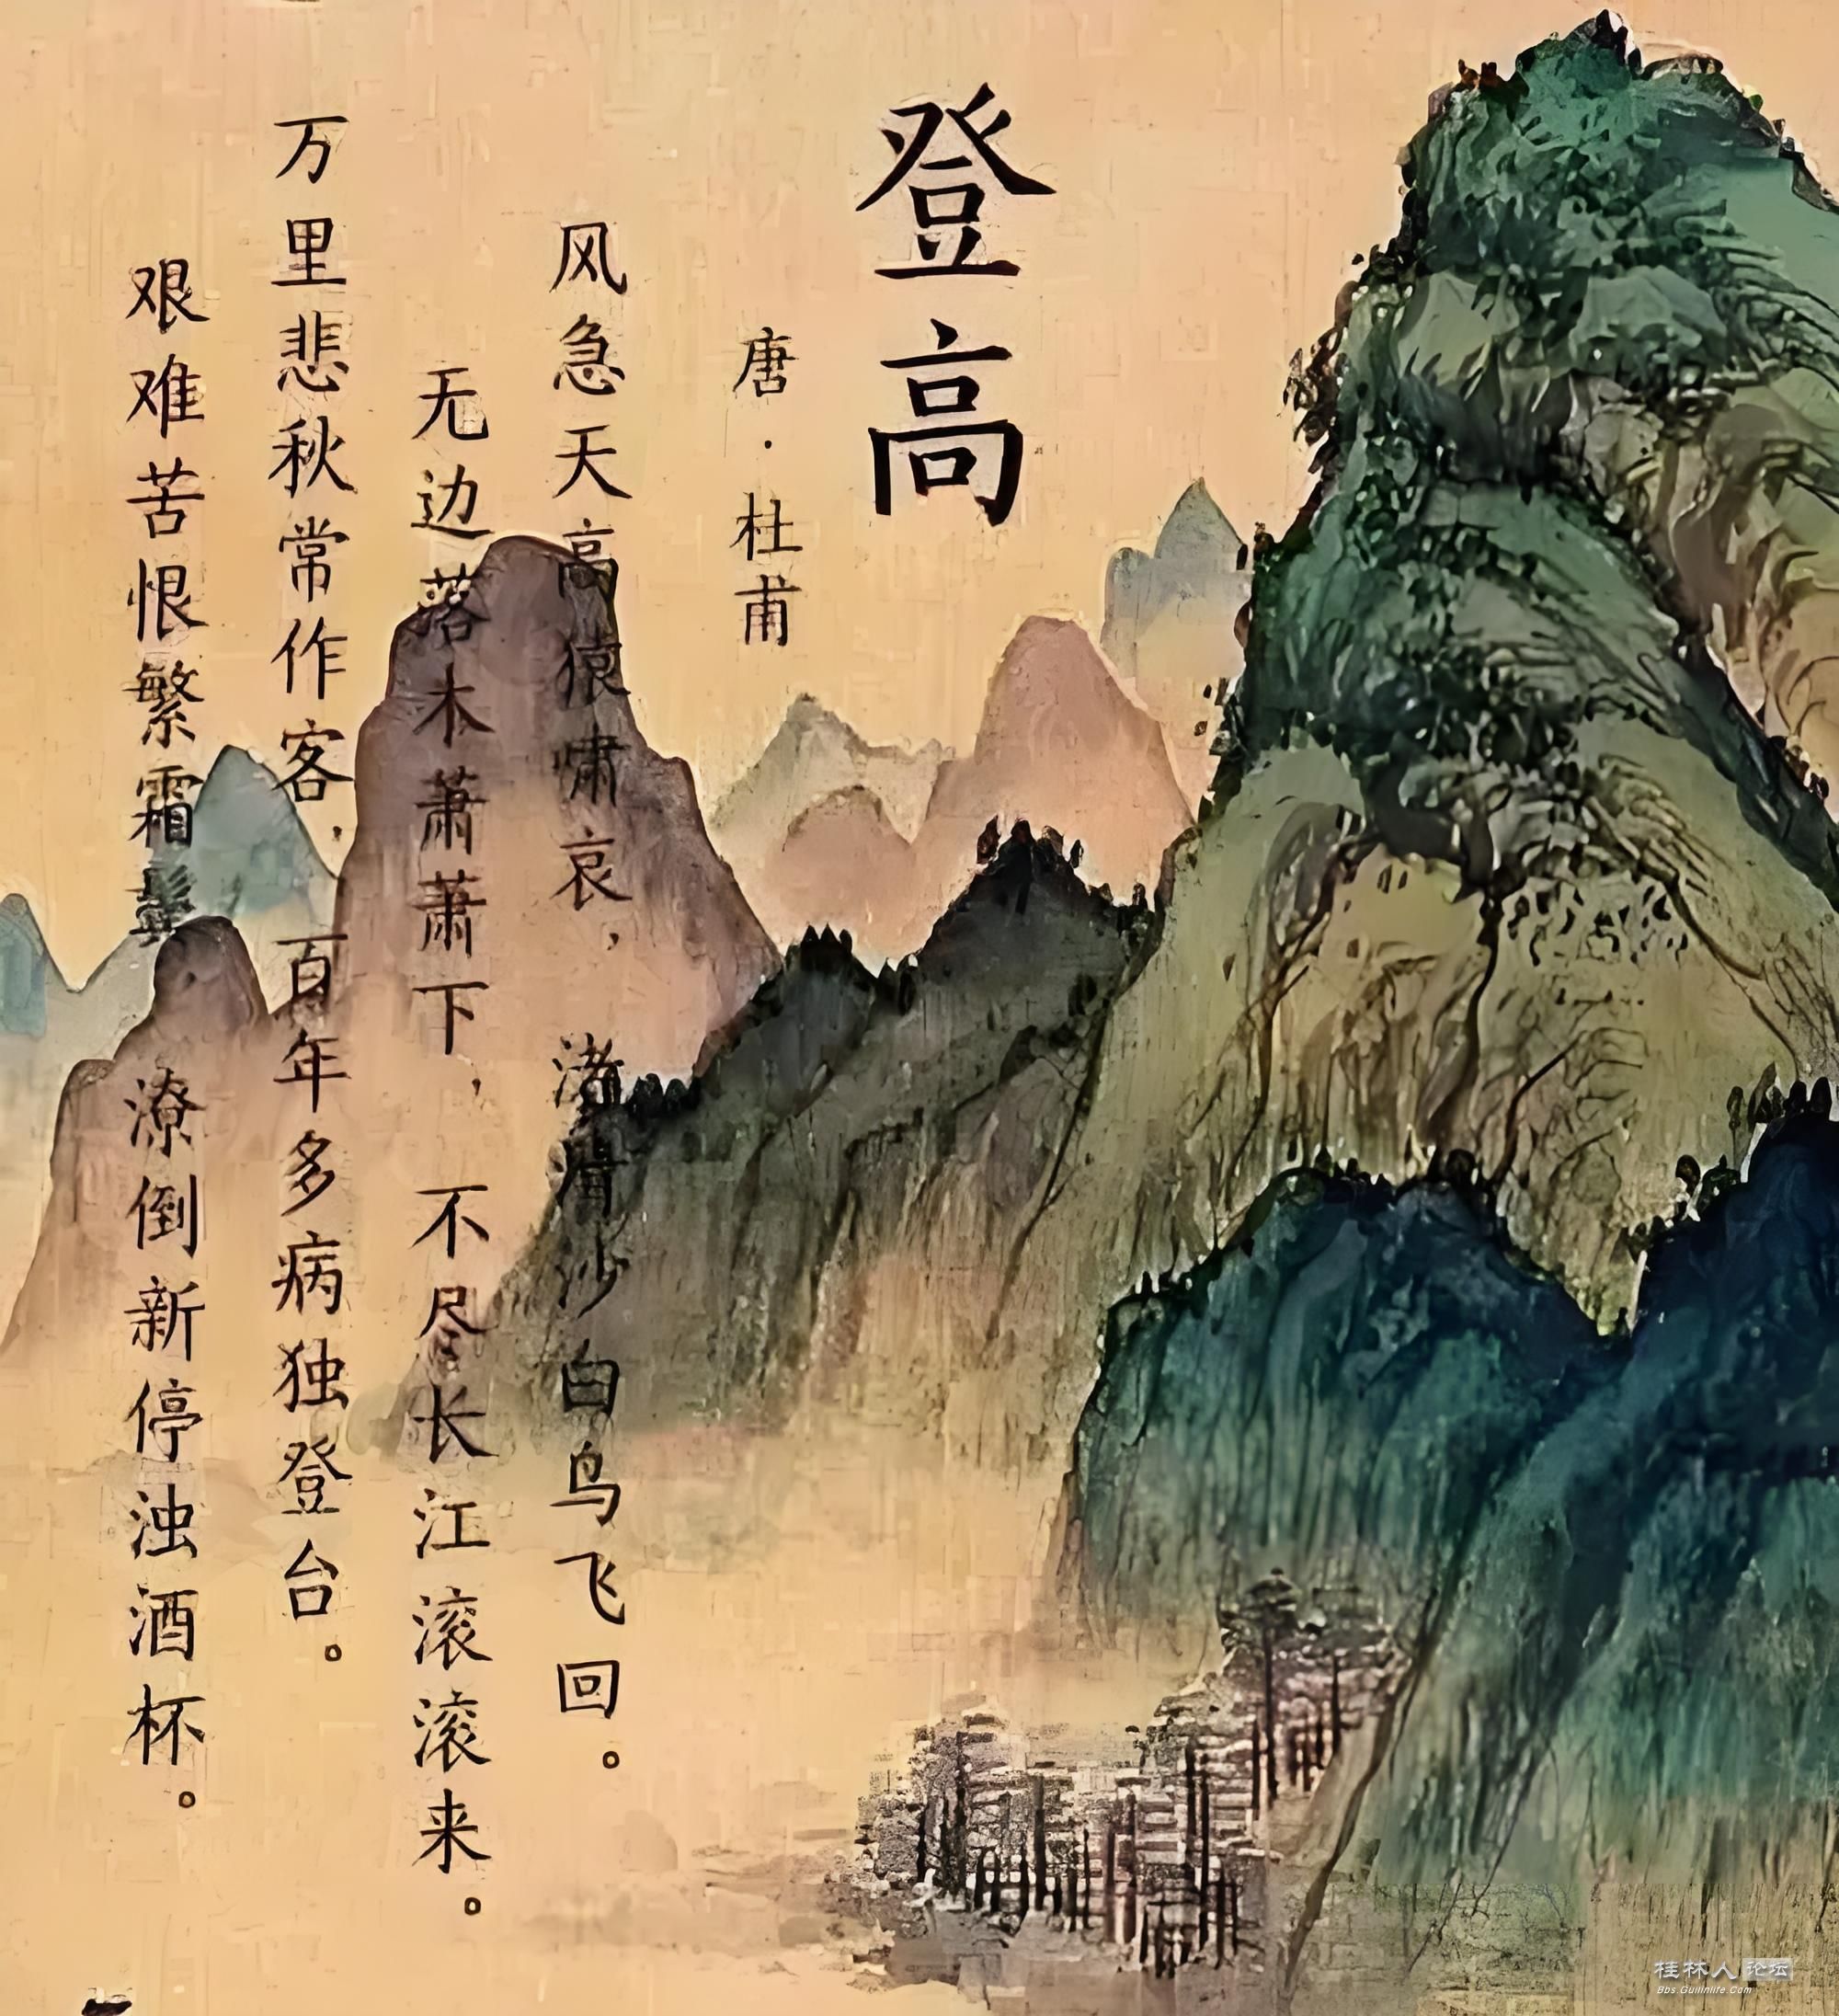 登高
唐·杜甫
风急天高猿啸哀，渚清沙白鸟飞回。
无边落木萧萧下，不尽长江滚滚来。
万里悲秋常作客，百年多病独登台。
艰难苦恨繁霜鬓 潦倒新停浊酒杯。
桂林人论坛
Bbs.Guilinlife.Com